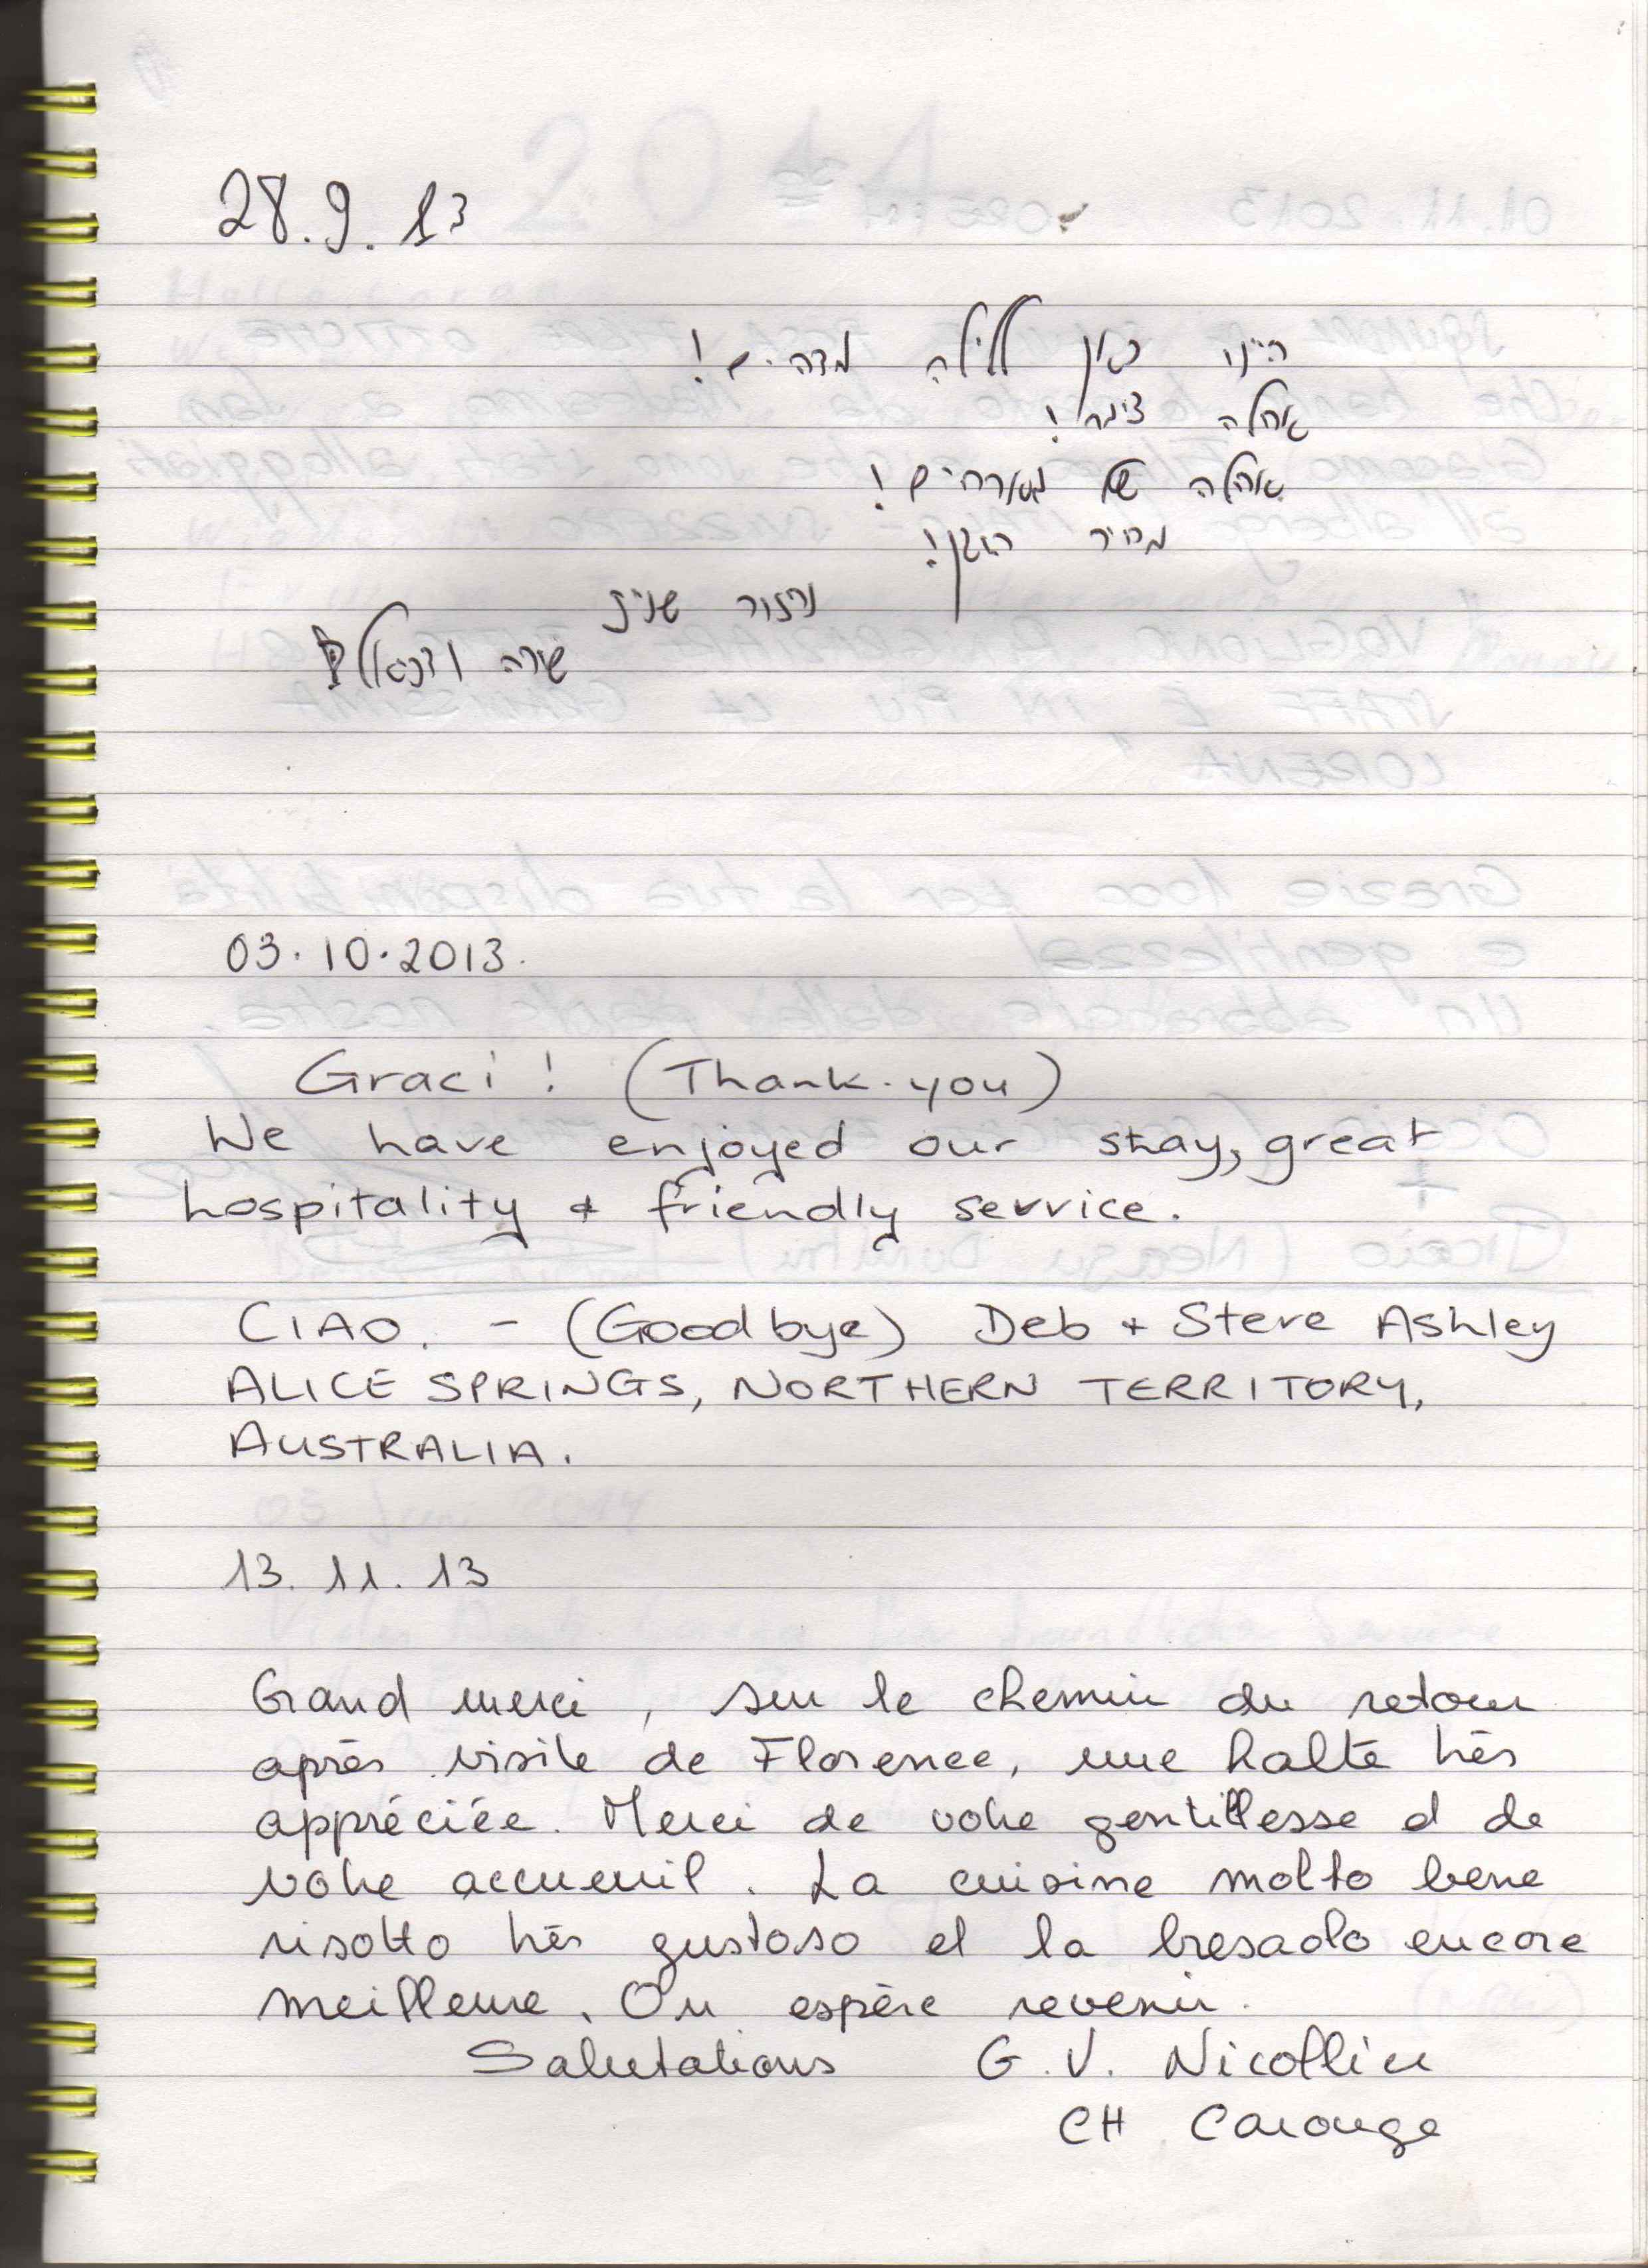 28.9.13
היינו כאן ללילה מדהים!
אחלה צימר!
אחלה של מארחים!
מחיר הוגן!
נחזור שוב
שירה ודניאל
03.10.2013.
Graci! (Thank-you)
We have enjoyed our stay, great
hospitality & friendly service.
CIAO. - (Goodbye) Deb + Steve Ashley
ALICE SPRINGS, NORTHERN TERRITORY,
AUSTRALIA.
13.11.13
Grand merci, sur le chemin du retour
après visite de Florence, une halte très
appréciée. Merci de votre gentillesse et de
votre accueuil. La cuisine molto bene
risotto très gustoso et la bresaolo encore
meilleure. On espère revenir.
Salutations G.V. Nicollin
CH Carouge